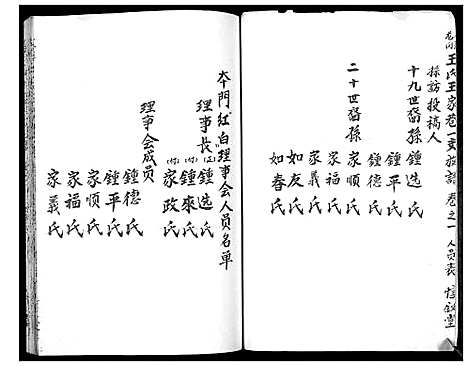 王氏王家巷一支族譜 卷之一 人員表 惇叙堂
採訪投稿人
十九世裔孫 鍾选 氏
鍾平 氏
鍾德 氏
二十世裔孫 家順 氏
家福 氏
家義 氏
如友 氏
如春 氏
本門紅白理事会人员名单
理事长 (正) 鍾选 氏
(付) 鍾來 氏
(付) 家政 氏
理事会成员 鍾德 氏
鍾平 氏
家顺 氏
家福 氏
家義 氏